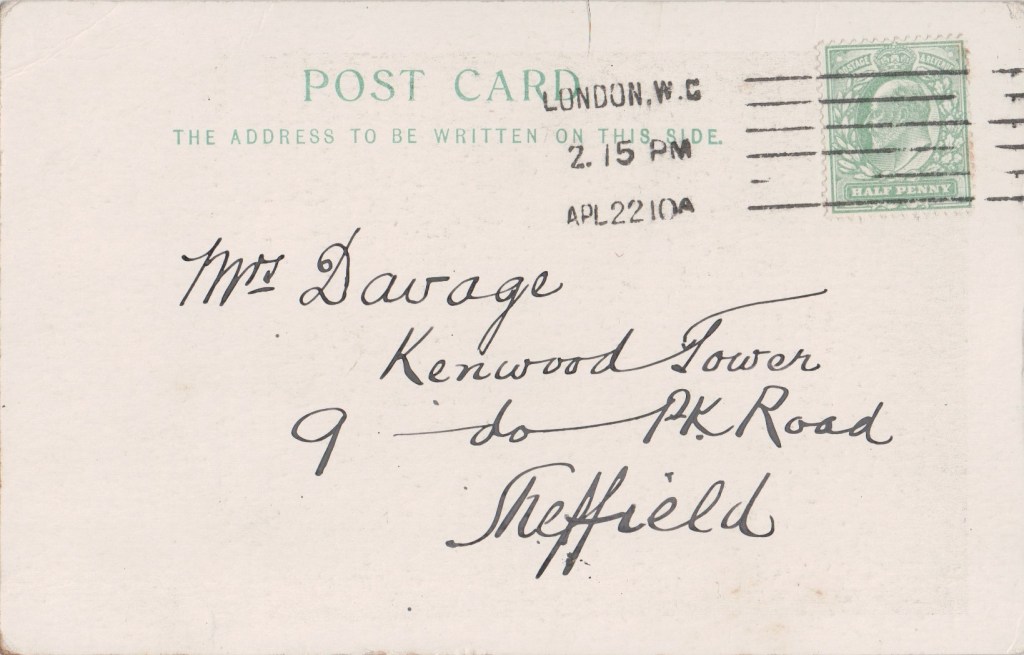 POST CARD
THE ADDRESS TO BE WRITTEN ON THIS SIDE.
LONDON. W.C
2. 15 PM
APL 22 10A
POSTAGE & REVENUE
HALF PENNY
Mrs Davage
Kenwood Tower
9 —do— Pk. Road
Sheffield